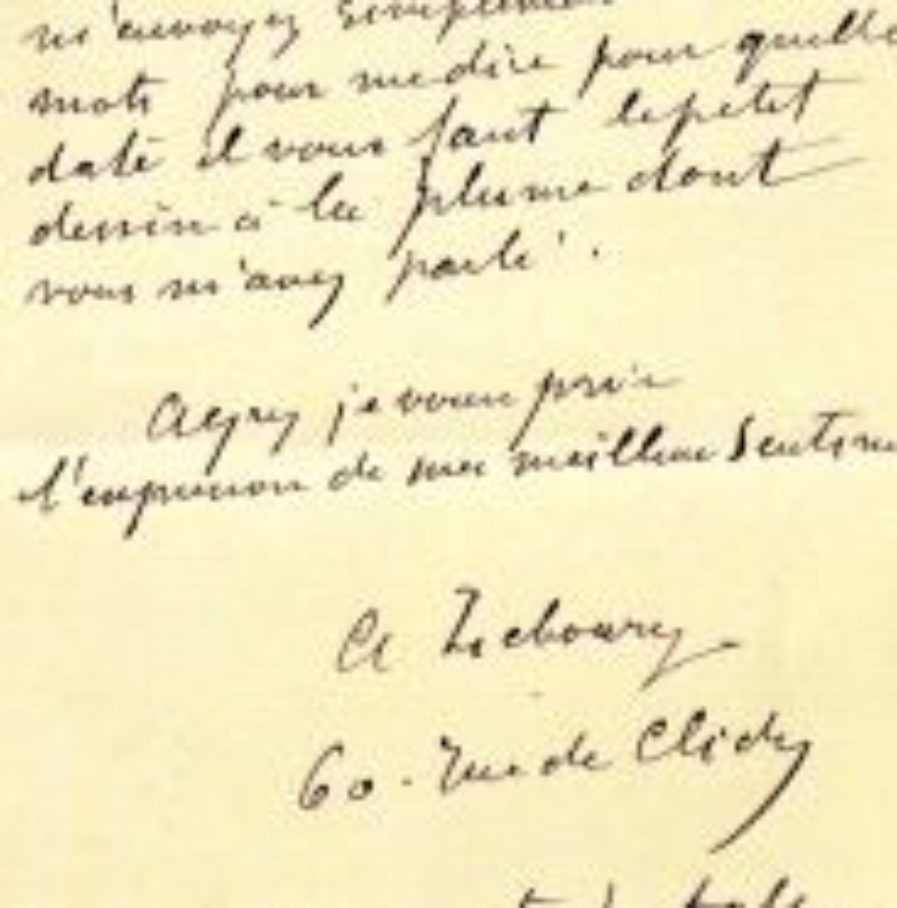 m'envoyez simplement
mots pour me dire pour quelle
date il vous faut le petit
dessin à la plume dont
vous m'avez parlé.
Agrez je vous prie
l'expression de mes meilleurs sentime
A Lebourg
60. rue de Clichy